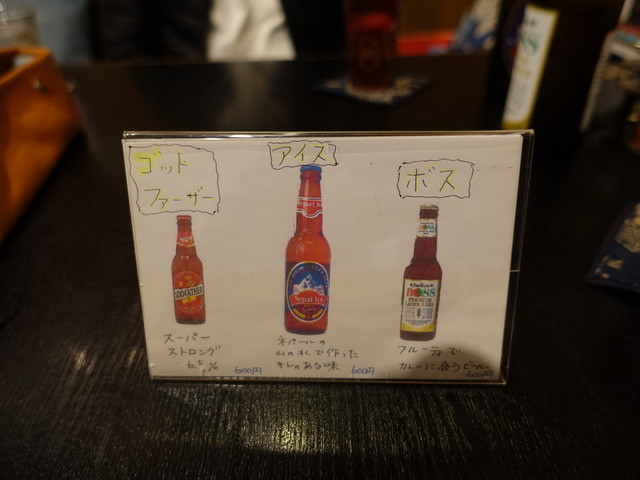 ゴッド
ファーザー
GODFATHER
スーパー
ストロング
6.5%
600円
アイス
Nepal Ice
Nepal Ice
ネパールの
山の水で作った
キレのある味
600円
ボス
BOSS
フルーティーで
カレーに合うビール
600円
BOSS